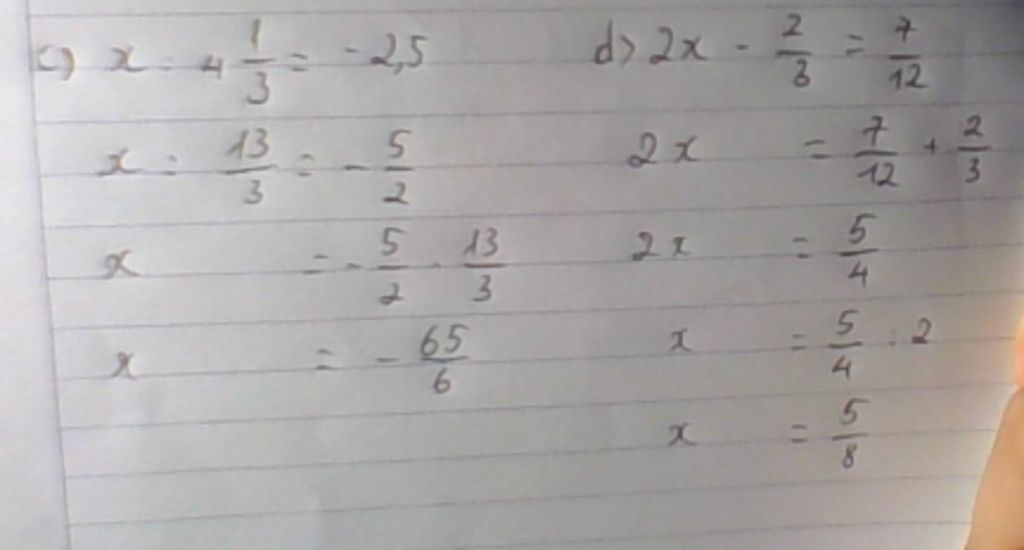 c) x : 4 1/3 = -2,5
x : 13/3 = - 5/2
x = - 5/2 . 13/3
x = - 65/6
d> 2x - 2/3 = 7/12
2x = 7/12 + 2/3
2x = 5/4
x = 5/4 : 2
x = 5/8